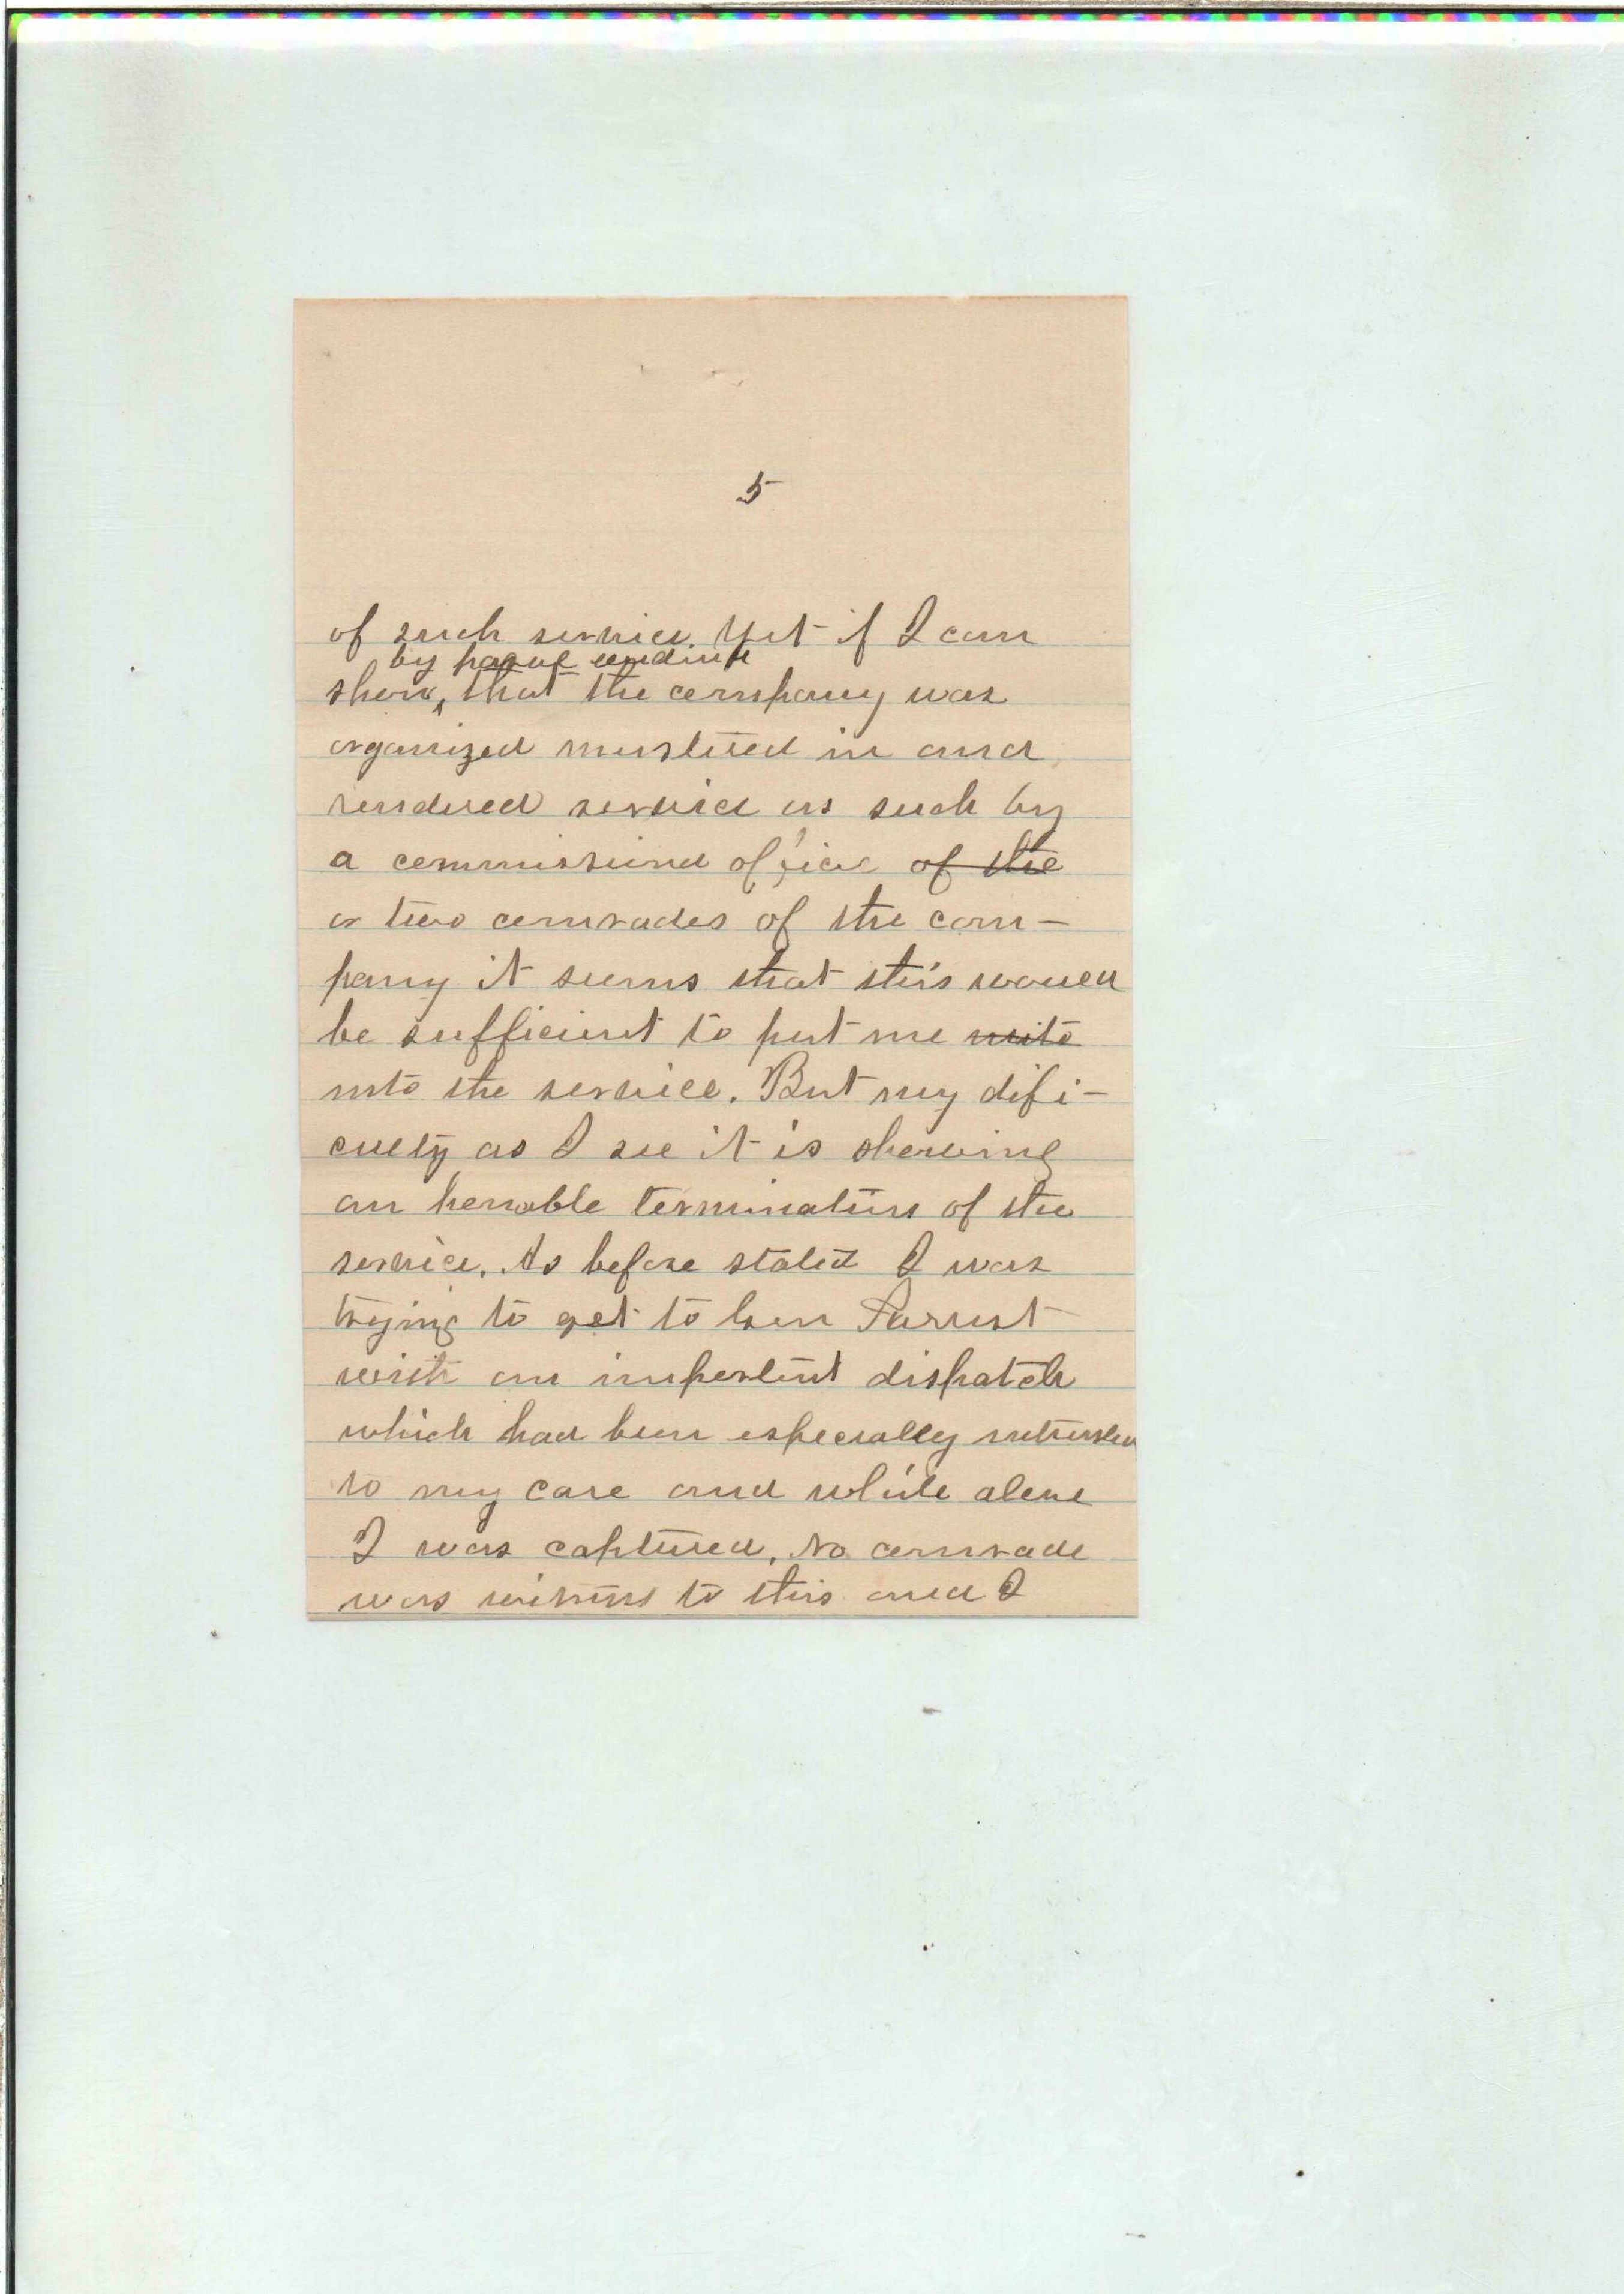 5
of such service. Yet if I can
by parol evidince
show, that the company was
organized mustered in and
rendered service as such by
a commissiond officer of the
or two comrades of the com-
pany it seems that this would
be sufficient to put me into
into the service. But my difi-
culty as I see it is showing
an honable termination of the
service. As before stated I was
trying to get to Gen Forrest
with an importent dispatch
which had been especially intrusted
to my care and while alone
I was captured. No comrade
was witness to this and I